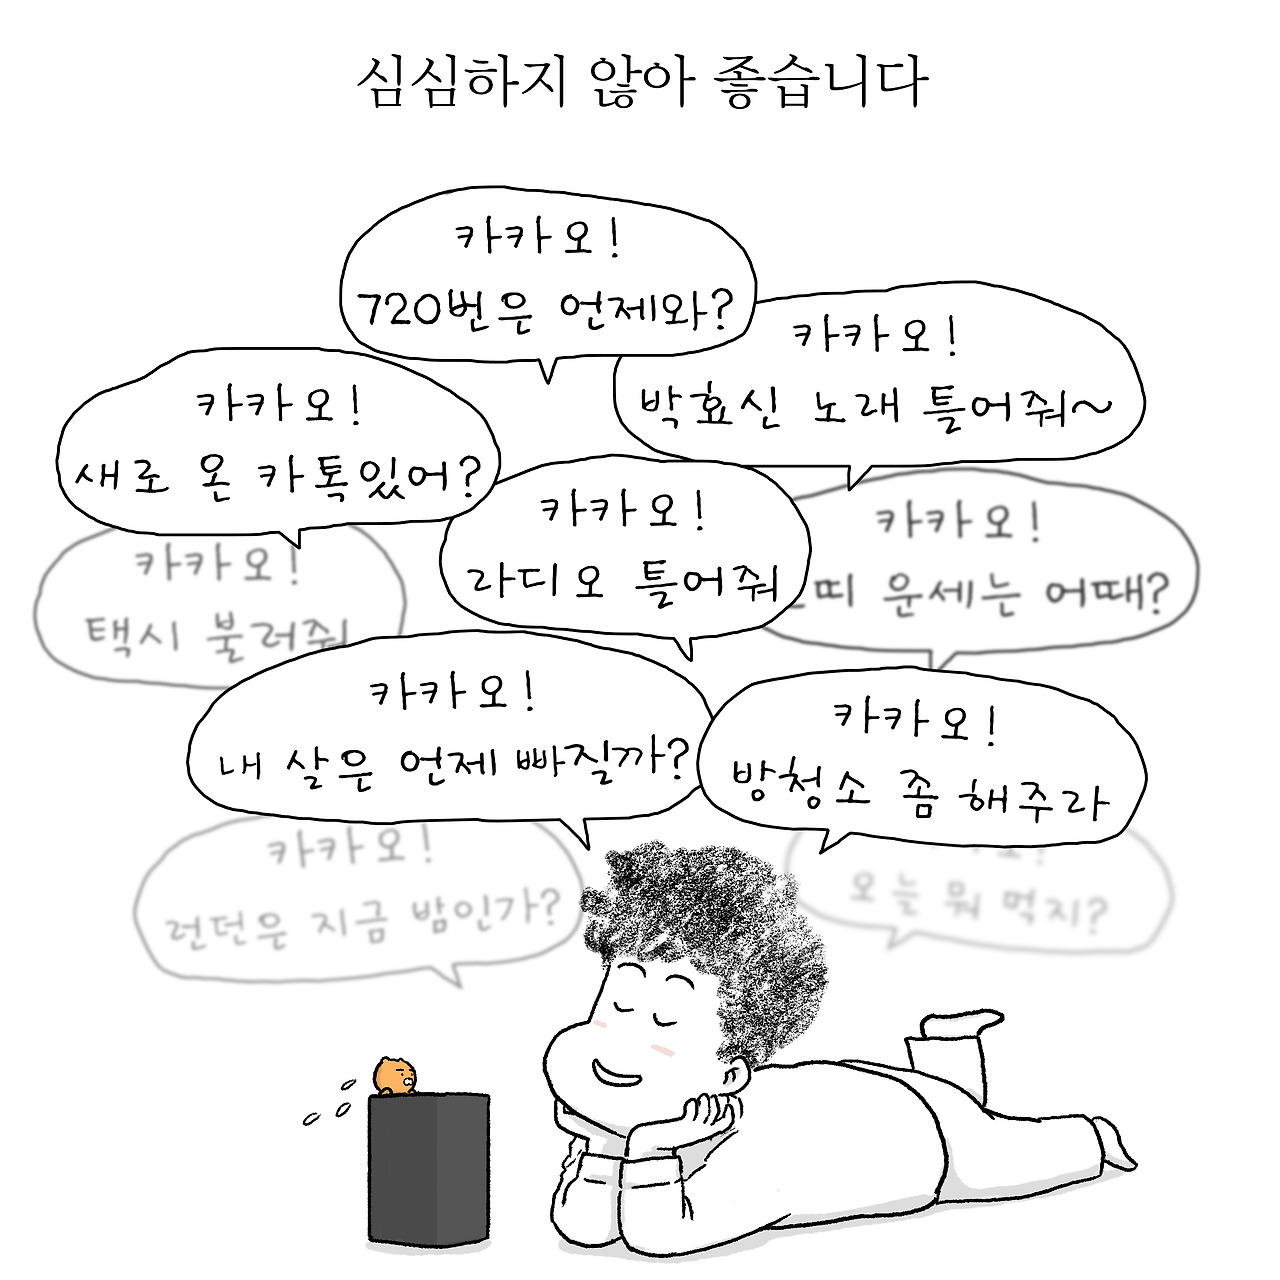 심심하지 않아 좋습니다
카카오!
720번은 언제와?
카카오!
박효신 노래 틀어줘~
카카오!
새로 온 카톡있어?
카카오!
라디오 틀어줘
카카오!
띠 운세는 어때?
카카오!
택시 불러줘
카카오!
내 살은 언제 빠질까?
카카오!
방청소 좀 해주라
카카오!
런던은 지금 밤인가?
오늘 뭐 먹지?